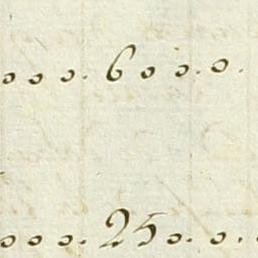 ooo. 6 o o.o.
ooo. 25 o. o. o